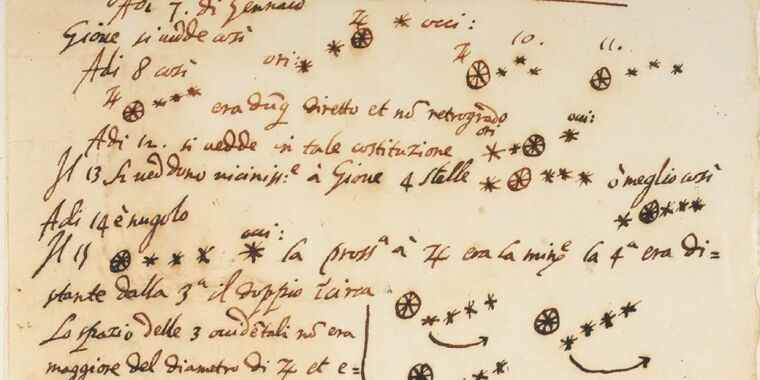 Adi 7. di Gennaio
Gione si uedde così
ori: occi:
10. 11.
Adi 8 così
era dūq diretto et nō retrogrado
Adi 12. si uedde in tale costituzione ori occi:
Il 13 si ueddono uiciniss:e à Gioue 4 stelle ò meglio così
Adi 14 è nugolo
Il 15 occi: la prossa à ♃ era la mine la 4a era di=
stante dalla 3a il doppio ī circa
Lo spazio delle 3 occidētali nō era
maggiore del diametro di ♃ et e=